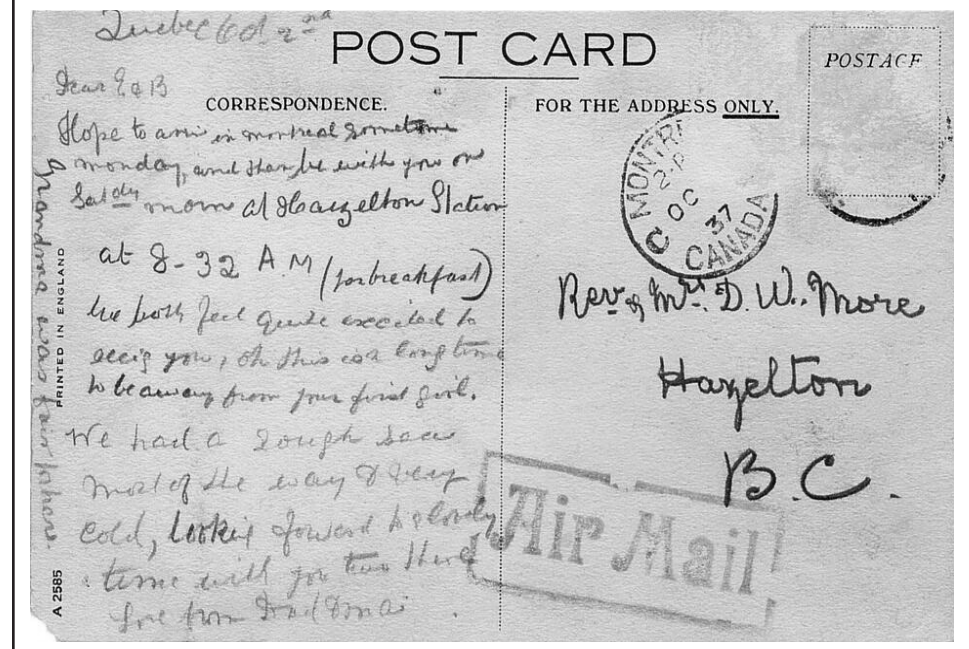 Quebec Oct 2nd
POST CARD
POSTAGE
Dear E & B
CORRESPONDENCE.
FOR THE ADDRESS ONLY.
Hope to arrive in montreal sometime
monday, and then be with you on
Satdy morn at Hazelton Station
at 8-32 A.M (for breakfast)
We both feel quite excited to
seeig you, oh this is a long time
to be away from your first girl.
We had a rough sea
most of the way & very
cold, looking forward to a lovely
time with you two there
love from Dad & ma
Grandma was fair
PRINTED IN ENGLAND
A 2585
MONTRE
2 P
OC
37
CANADA
Rev. & Mrs. D. W. More
Hazelton
B.C.
Air Mail